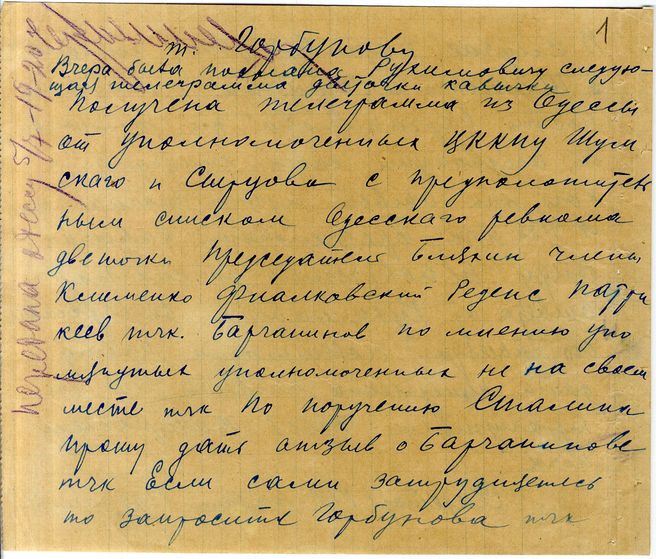 1
т. Горбунову
Вчера была послана Рухимовичу следую-
щая телеграмма двоеточие кавычки
Получена телеграмма из Одессы
от уполномоченных ЦККПУ Шум
скаго и Сырцова с предположитель
ным списком Одесскаго ревкома
двоеточие Председатель члены
Клименко Фиалковский Реденс Патри
кеев тчк. Барчанинов по мнению упо
мянутых уполномоченных не на своем
месте тчк По поручению Сталина
прошу дать отзыв о Барчанинове
тчк Если сами затрудняетесь
то запросите Горбунова тчк
передана 5/4-19-20